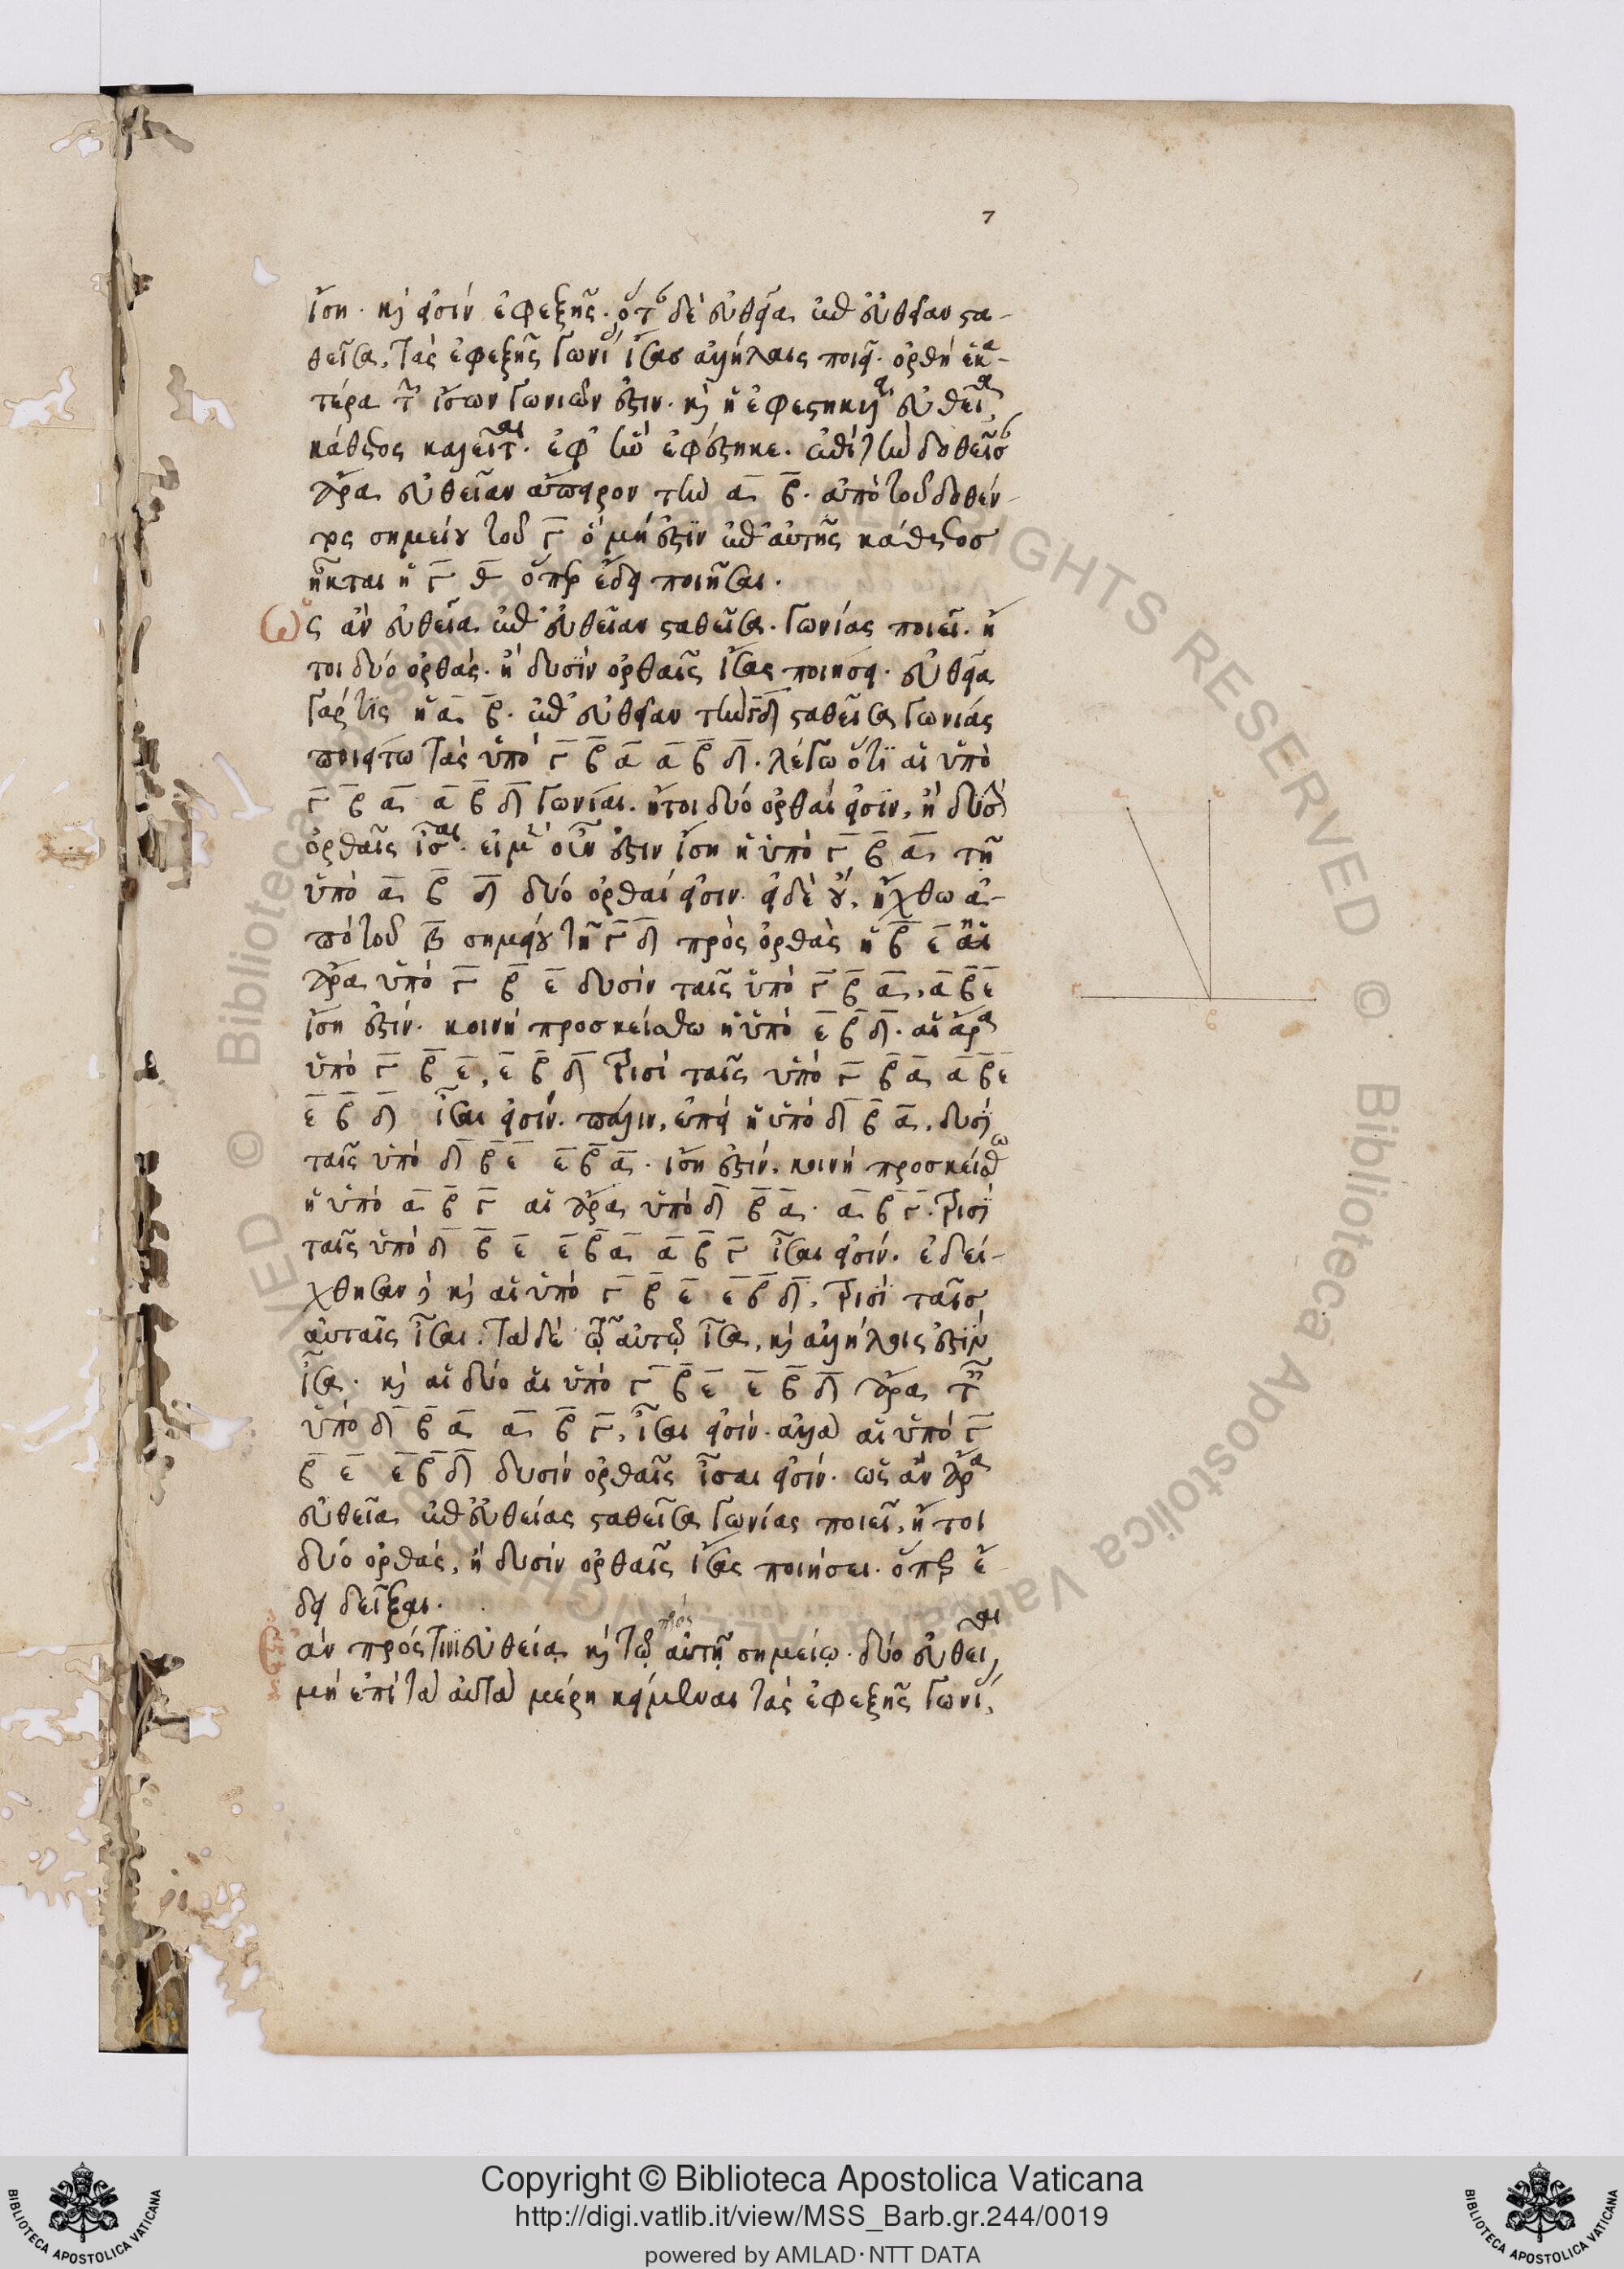 7
ἴση. καὶ εἰσὶν ἐφεξῆς. ὅταν δὲ εὐθεῖα ἐπ' εὐθεῖαν στα-
θεῖσα, τὰς ἐφεξῆς γωνίας ἴσας ἀλλήλαις ποιεῖ. ὀρθὴ ἑκα-
τέρα τῶν ἴσων γωνιῶν ἐστιν. καὶ ἡ ἐφεστηκυῖα εὐθεῖα,
κάθετος καλεῖται. ἐφ' ἣν ἐφέστηκε. ἐπὶ τὴν δοθεῖσαν
ἄρα εὐθεῖαν ἄπειρον τὴν α β. ἀπὸ τοῦ δοθέν-
τος σημείου τοῦ γ ὃ μή ἐστιν ἐπ' αὐτῆς κάθετος
ἦκται ἡ γ θ ὅπερ ἔδει ποιῆσαι.
ὡς ἂν εὐθεῖα ἐπ' εὐθεῖαν σταθεῖσα. γωνίας ποιεῖ. ἤ
τοι δύο ὀρθάς. ἢ δυσὶν ὀρθαῖς ἴσας ποιήσει. εὐθεῖα
γάρ τις ἡ α β. ἐπ' εὐθεῖαν τὴν γδ σταθεῖσα γωνίας
ποιείτω τὰς ὑπὸ γ β α α β δ. λέγω ὅτι αἱ ὑπὸ
γ β α α β δ γωνίαι. ἤτοι δύο ὀρθαί εἰσιν, ἢ δυσὶν
ὀρθαῖς ἴσαι. εἰ μὲν οὖν ἐστιν ἴση ἡ ὑπὸ γ β α τῇ
ὑπὸ α β δ δύο ὀρθαί εἰσιν. εἰ δὲ οὔ, ἤχθω ἀ-
πὸ τοῦ β σημείου τῇ γ δ πρὸς ὀρθὰς ἡ β ε αἱ
ἄρα ὑπὸ γ β ε δυσὶν ταῖς ὑπὸ γ β α, α β ε
ἴση ἐστίν. κοινὴ προσκείσθω ἡ ὑπὸ ε β δ. αἱ ἄρα
ὑπὸ γ β ε, ε β δ τρισὶ ταῖς ὑπὸ γ β α α β ε
ε β δ ἴσαι εἰσίν. πάλιν, ἐπεὶ ἡ ὑπὸ δ β α, δυσὶ
ταῖς ὑπὸ δ β ε ε β α. ἴση ἐστίν. κοινὴ προσκείσθω
ἡ ὑπὸ α β γ αἱ ἄρα ὑπὸ δ β α. α β γ. τρισὶ
ταῖς ὑπὸ δ β ε ε β α α β γ ἴσαι εἰσίν. ἐδεί-
χθησαν δὲ καὶ αἱ ὑπὸ γ β ε ε β δ, τρισὶ ταῖς
αὐταῖς ἴσαι. τὰ δὲ τῷ αὐτῷ ἴσα, καὶ ἀλλήλοις ἐστὶν
ἴσα. καὶ αἱ δύο αἱ ὑπὸ γ β ε ε β δ ἄρα τῶν
ὑπὸ δ β α α β γ, ἴσαι εἰσίν. ἀλλὰ αἱ ὑπὸ γ
β ε ε β δ δυσὶν ὀρθαῖς ἴσαι εἰσίν. ὡς ἂν ἄρα
εὐθεῖα ἐπ' εὐθείας σταθεῖσα γωνίας ποιεῖ, ἤ τοι
δύο ὀρθάς, ἢ δυσὶν ὀρθαῖς ἴσας ποιήσει. ὅπερ ἔ-
δει δεῖξαι.
πρός
ἂν πρός τινι εὐθείᾳ καὶ τῷ αὐτῇ σημείῳ. δύο εὐθεῖαι
μὴ ἐπὶ τὰ αὐτὰ μέρη κείμεναι τὰς ἐφεξῆς γωνίας,
α
ε
γ
β
Copyright © Biblioteca Apostolica Vaticana
http://digi.vatlib.it/view/MSS_Barb.gr.244/0019
powered by AMLAD·NTT DATA
BIBLIOTECA APOSTOLICA VATICANA
BIBLIOTECA APOSTOLICA VATICANA